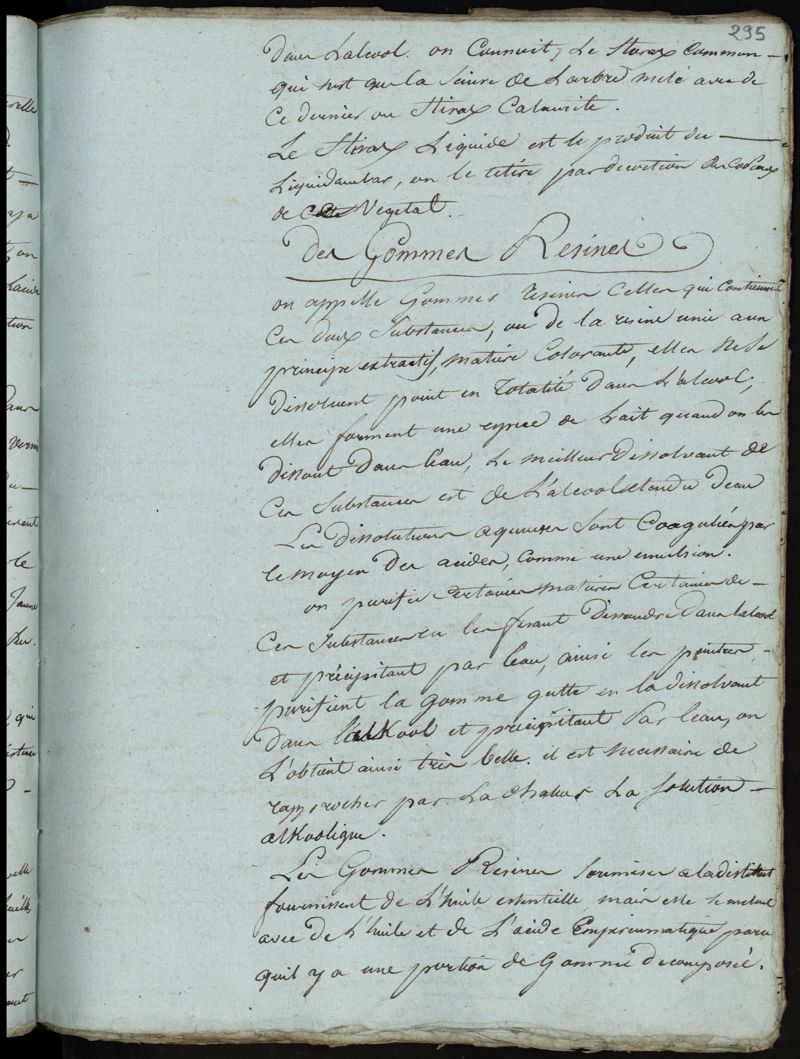 295
dans L'alcool. on Connoit, Le Storax Common
qui n'est que la Sciure de L'arbre melé avec de
Ce dernier ou Stirax Calamite.
Le Stirax Liquide est le produit du
Liquidambar, on le retire par decoction des
de Vegetal.
Des Gommes Resines
on appelle Gommes resines Celles qui Contiennent
Ces deux Substances, ou de la resine unie a un
principe extractif, matiere Colorante, elles ne se
dissoluent point en totalité dans L'alcool;
elles forment une espece de Lait quand on les
dissout dans l'eau, Le meilleur dissolvant de
Ces Substances est de L'alcool etendu d'eau
Les dissolutions aqueuses sont Coagulées par
le moyen des acides, comme une emulsion.
on purifie Certaines matieres Certaines de
Ces Substances en les fesant Dissoudre dans lalcool
et précipitant par l'eau, ainsi les peintres
purifient la gomme gutte en la dissolvant
dans l'alKool et precipitant Par l'eau, on
L'obtient ainsi très belle. il est necessaire de
rapprocher par La Chaleur La Solution
alKoolique.
Les Gommes Resines Soumises a la distillat
fournissent de L'huile essentielle mais elle se melent
avec de L'huile et de L'acide Empireumatique parce
qu'il y a une portion de Gomme decomposée.